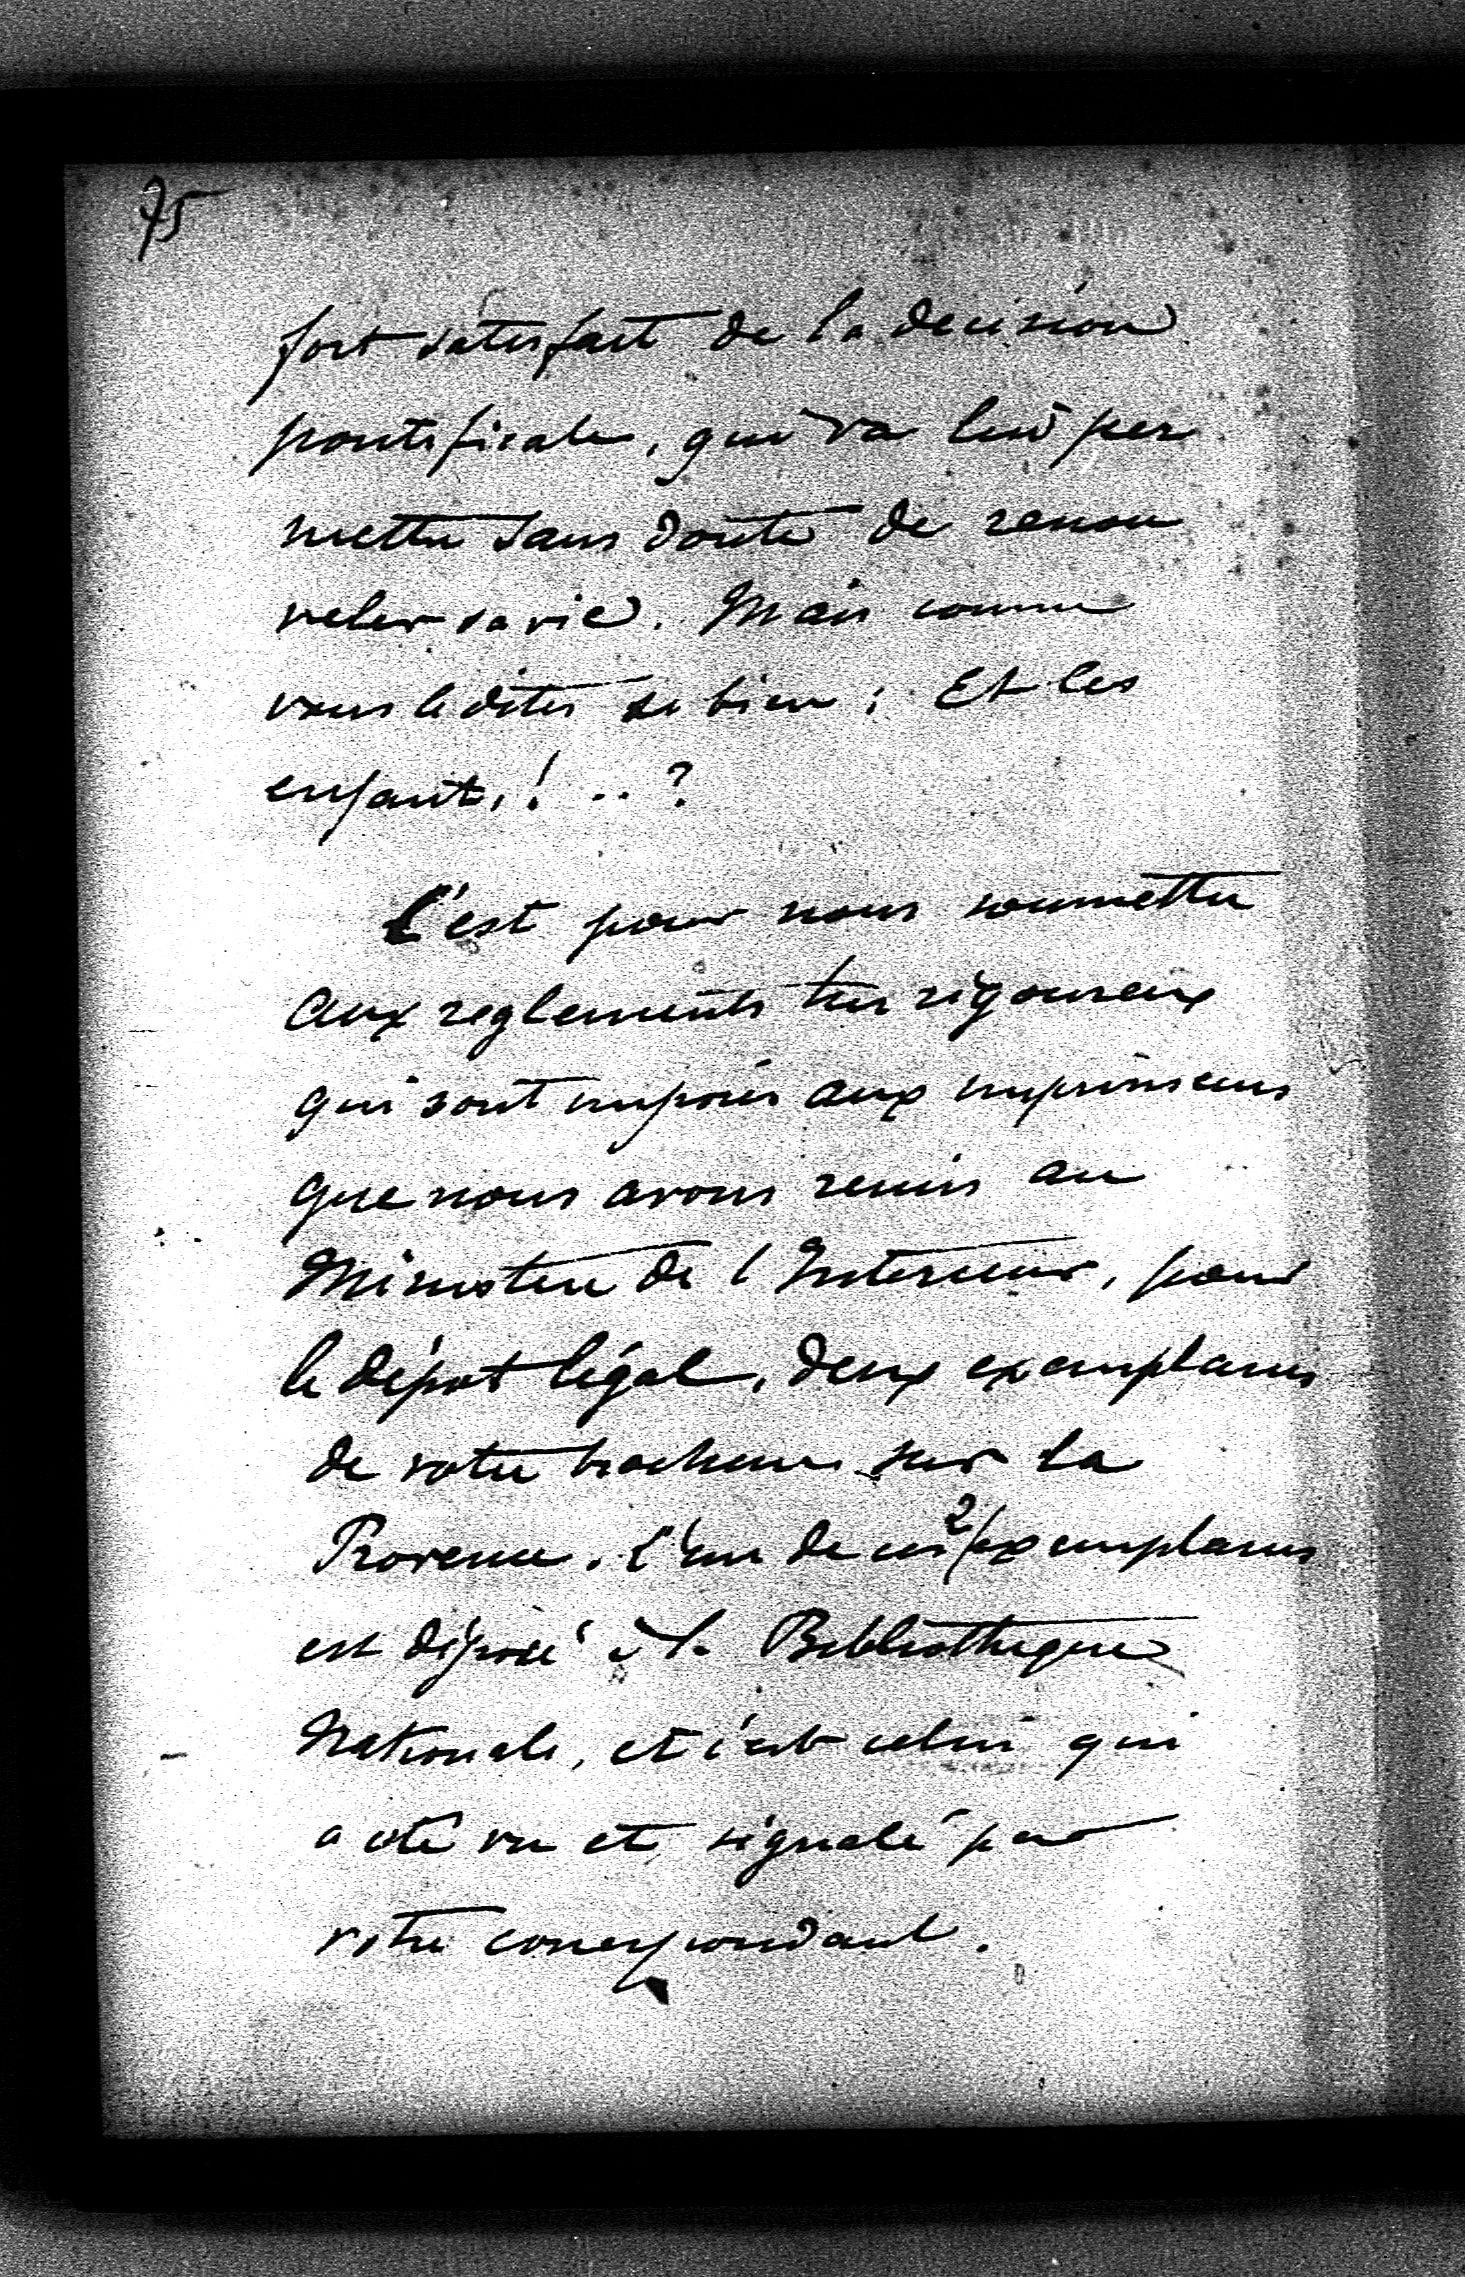 75
fort satisfait de la decision
pontificale, qui va lui per
mettre sans doute de renou
veler sa vie. Mais comme
vous le dites si bien : Et les
enfants ! .. ?
C'est pour nous soumettre
aux reglements très rigoureux
qui sont imposés aux imprimeurs
que nous avons remis au
Ministère de l'Interieur, pour
le dépot légal, deux exemplaires
de votre brochure sur la
Provence. L'un de ces 2 exemplaires
est déposé à la Bibliothèque
Nationale, et c'est celui qui
a été vu et signalé par
votre correspondant.